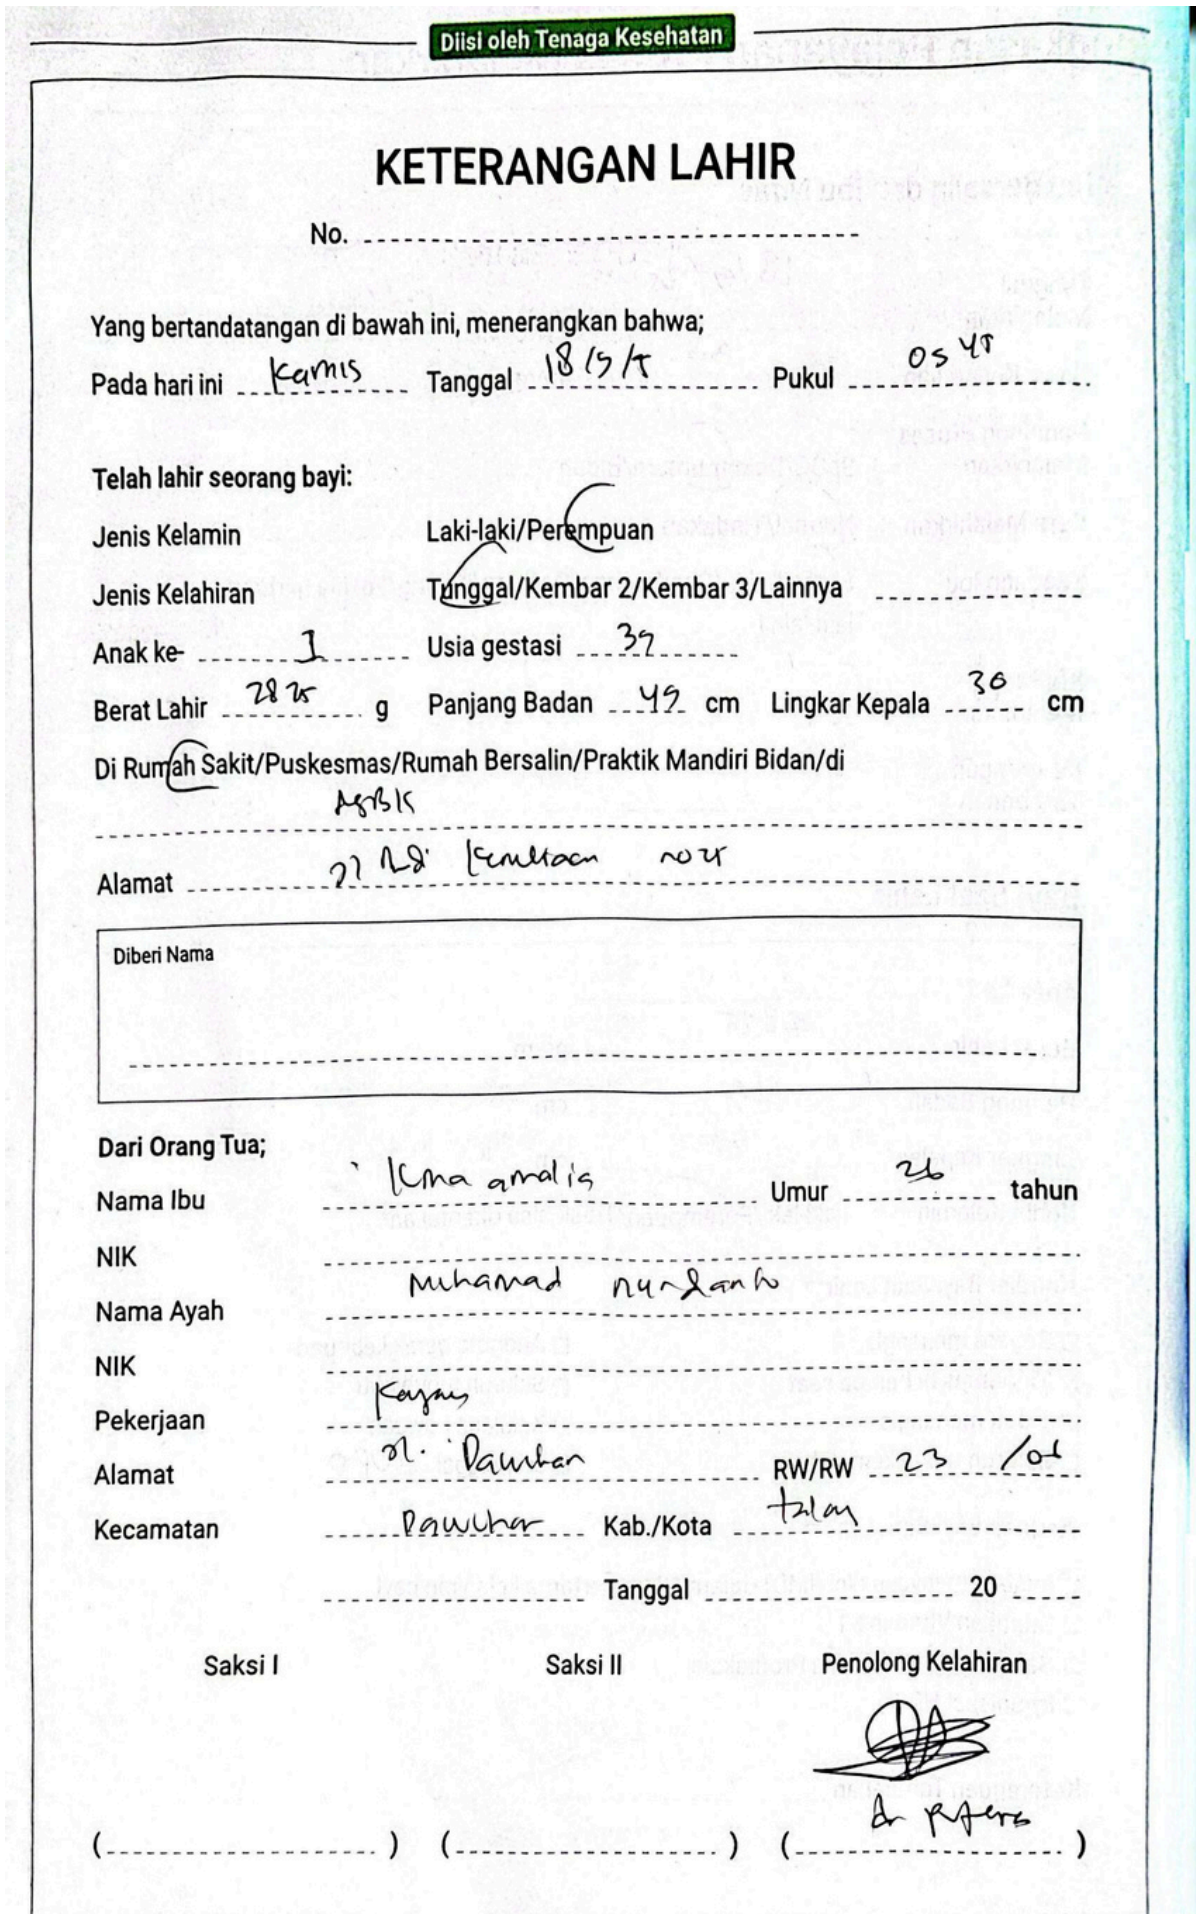 Diisi oleh Tenaga Kesehatan
KETERANGAN LAHIR
No.
Yang bertandatangan di bawah ini, menerangkan bahwa;
Pada hari ini Kamis Tanggal 18/9/ Pukul 05 45
Telah lahir seorang bayi:
Jenis Kelamin Laki-laki/Perempuan
Jenis Kelahiran Tunggal/Kembar 2/Kembar 3/Lainnya
Anak ke- 1 Usia gestasi 39
Berat Lahir 2825 g Panjang Badan 49 cm Lingkar Kepala 30 cm
Di Rumah Sakit/Puskesmas/Rumah Bersalin/Praktik Mandiri Bidan/di
Alamat
Diberi Nama
Dari Orang Tua;
Nama Ibu amalia Umur 26 tahun
NIK
Nama Ayah Muhamad
NIK
Pekerjaan
Alamat Dawuhan RW/RW 23 /01
Kecamatan Dawuhan Kab./Kota
Tanggal 20
Saksi I Saksi II Penolong Kelahiran
dr
( ) ( ) ( )